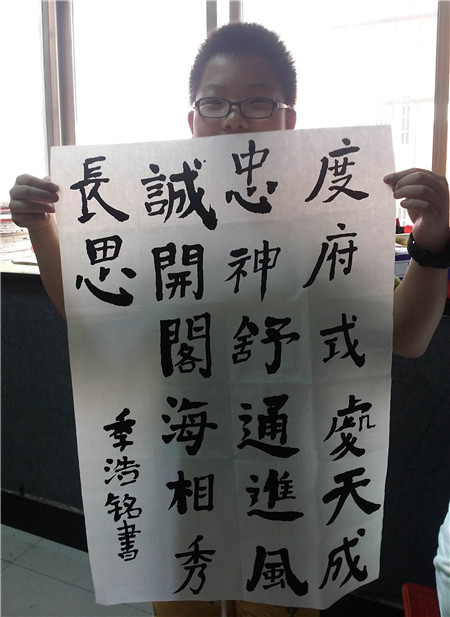 度府式處天成
忠神舒通進風
誠開閣海相秀
長思
季浩铭書